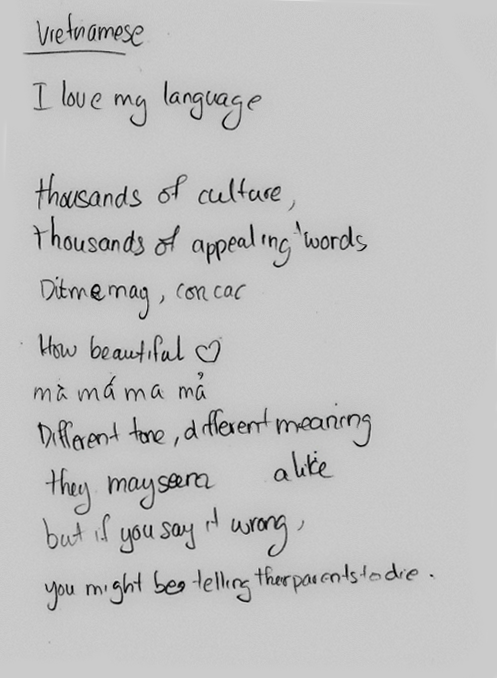 Vietnamese
I love my language
thousands of culture,
thousands of appealing words
Ditmemag, con cac
How beautiful ♡
mà má ma mả
Different tone, different meaning
they may seem alike
but if you say it wrong,
you might be telling their parents to die.